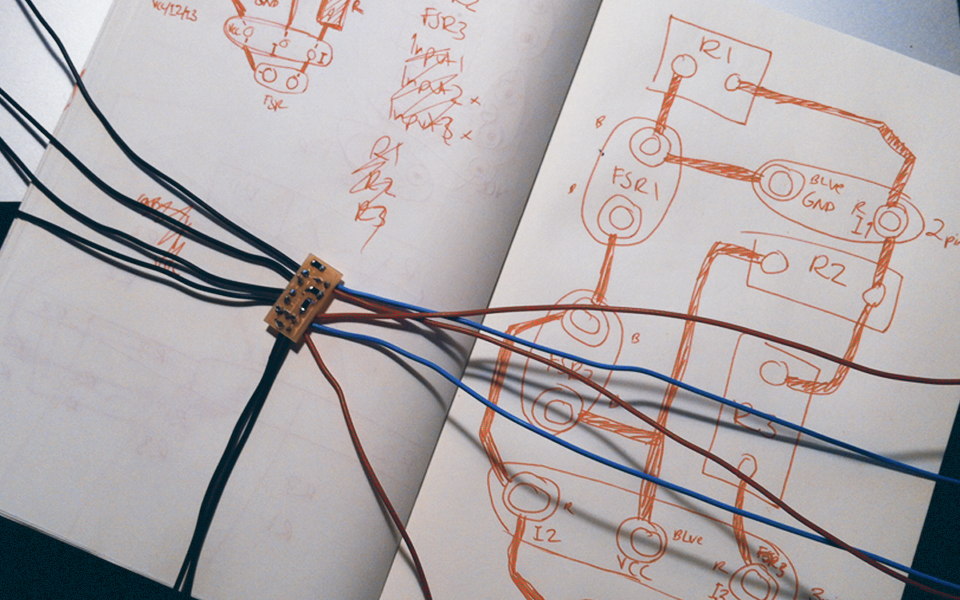 VCC/I2/I3
GND
R
VCC
I
I
FSR
FSR3
Input1
Input2 x
Input3 x
R1
R2
R3
R1
B
FSR1
B
BLUE
GND
R
I1
2 pin
R2
B
FSR2
R3
R
I2
BLUE
VCC
FSR3
R
I3